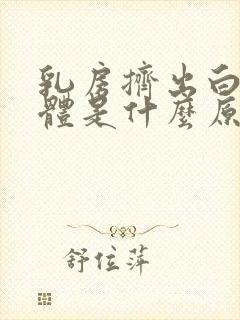 乳房擠出白
體是什麼原
舒位萍